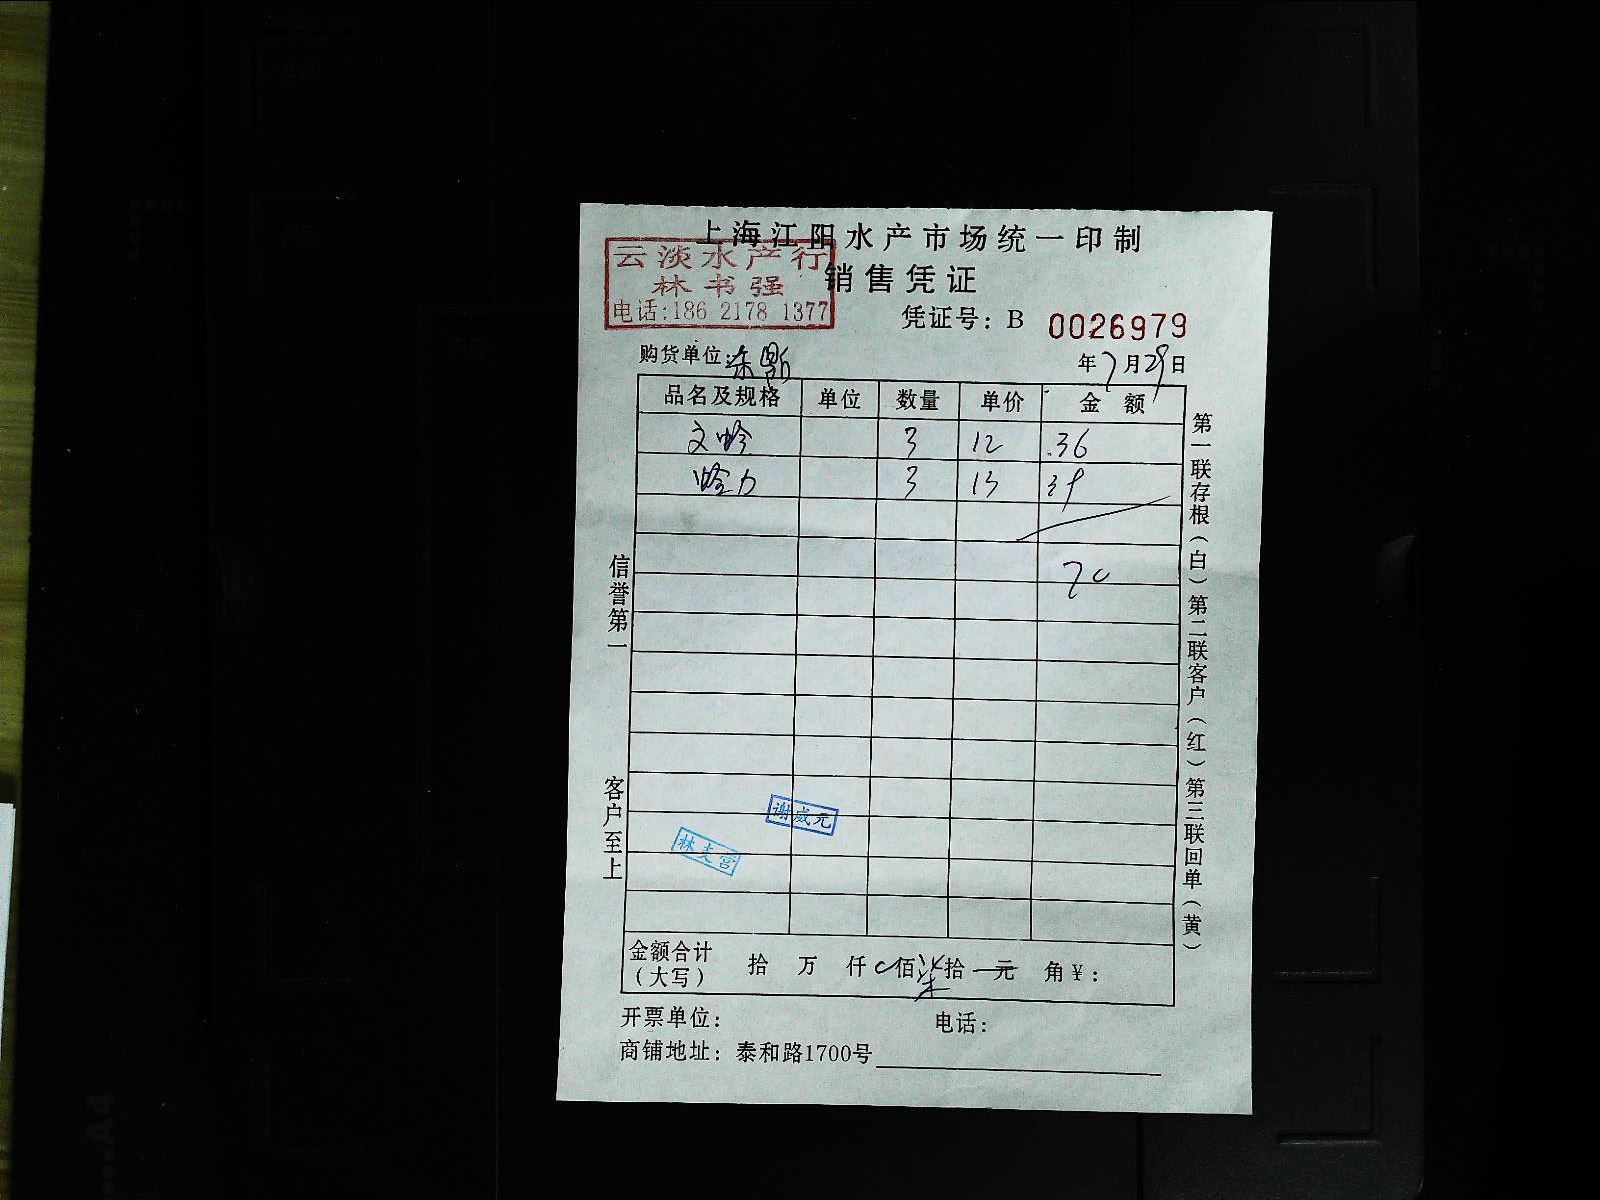 上海江阳水产市场统一印制
云淡水产行
林书强
电话:186 2178 1377
销售凭证
凭证号: B 0026979
购货单位:
年7月29日
品名及规格 单位 数量 单价 金额
文蛤 3 12 36
蛤力 3 13 39
70
谢威元
林支宫
金额合计(大写) 拾 万 仟 0 佰 柒 拾 一元 角 ¥:
开票单位: 电话:
商铺地址: 泰和路1700号
信誉第一
客户至上
第一联存根(白)第二联客户(红)第三联回单(黄)